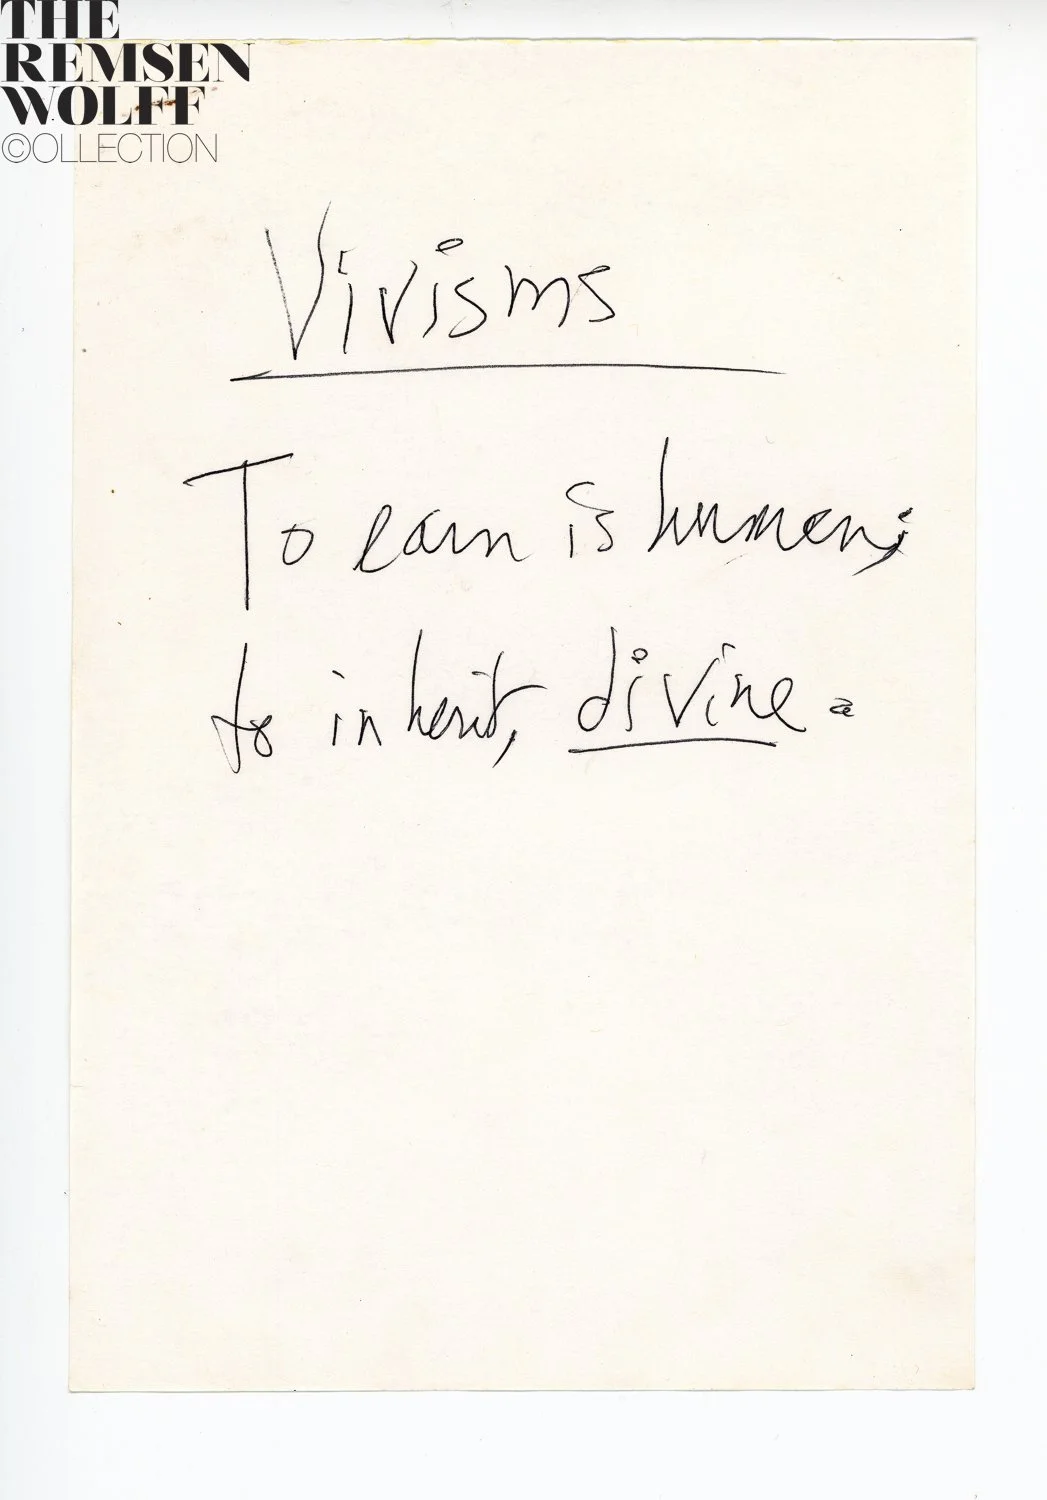 THE
REMSEN
WOLFF
©OLLECTION
Vivisms
To earn is human;
to inherit, divine.